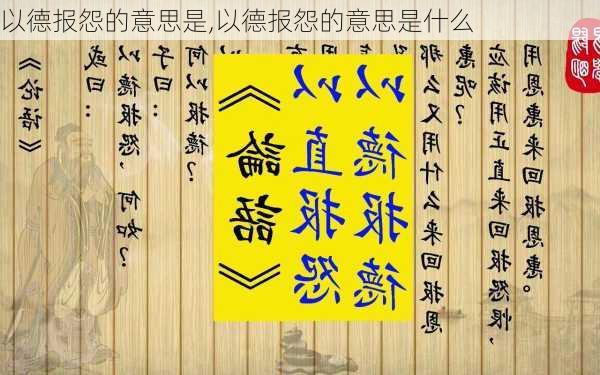 以德报怨的意思是,以德报怨的意思是什么
《论语》
或曰：
以德报怨，何如？
子曰：
何以报德？
《論語》
以直报怨
以德报德
那么又用什么来回报恩
惠呢？
应该用正直来回报怨恨，
用恩惠来回报恩惠。